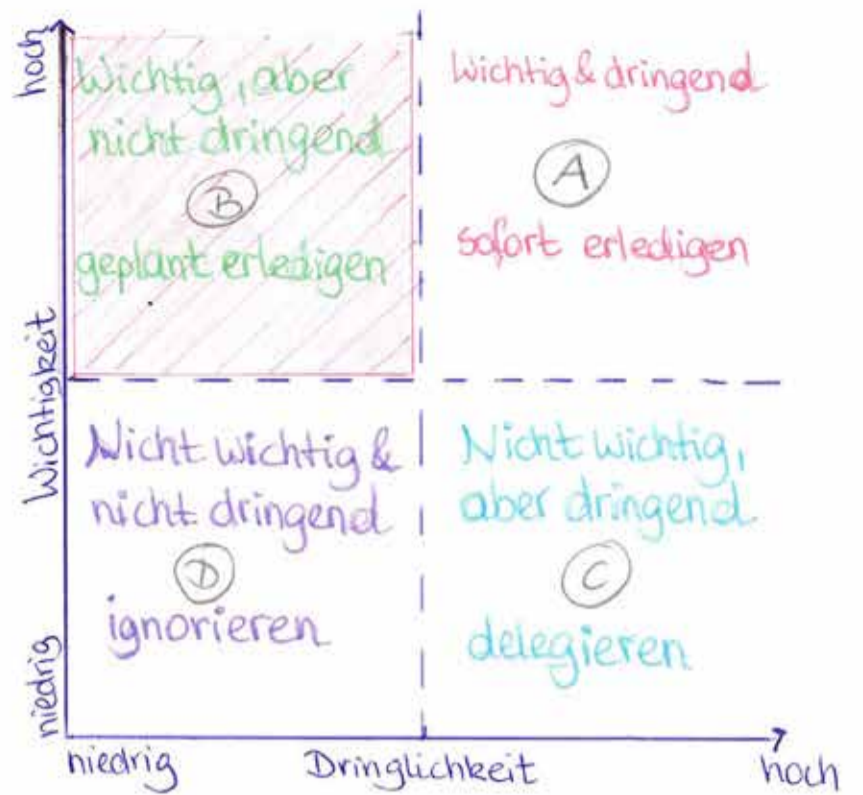 hoch
Wichtig, aber
nicht dringend
B
geplant erledigen
Wichtig & dringend
A
sofort erledigen
Wichtigkeit
Nicht wichtig &
nicht dringend
D
ignorieren
Nicht wichtig,
aber dringend
C
delegieren
niedrig
niedrig
Dringlichkeit
hoch